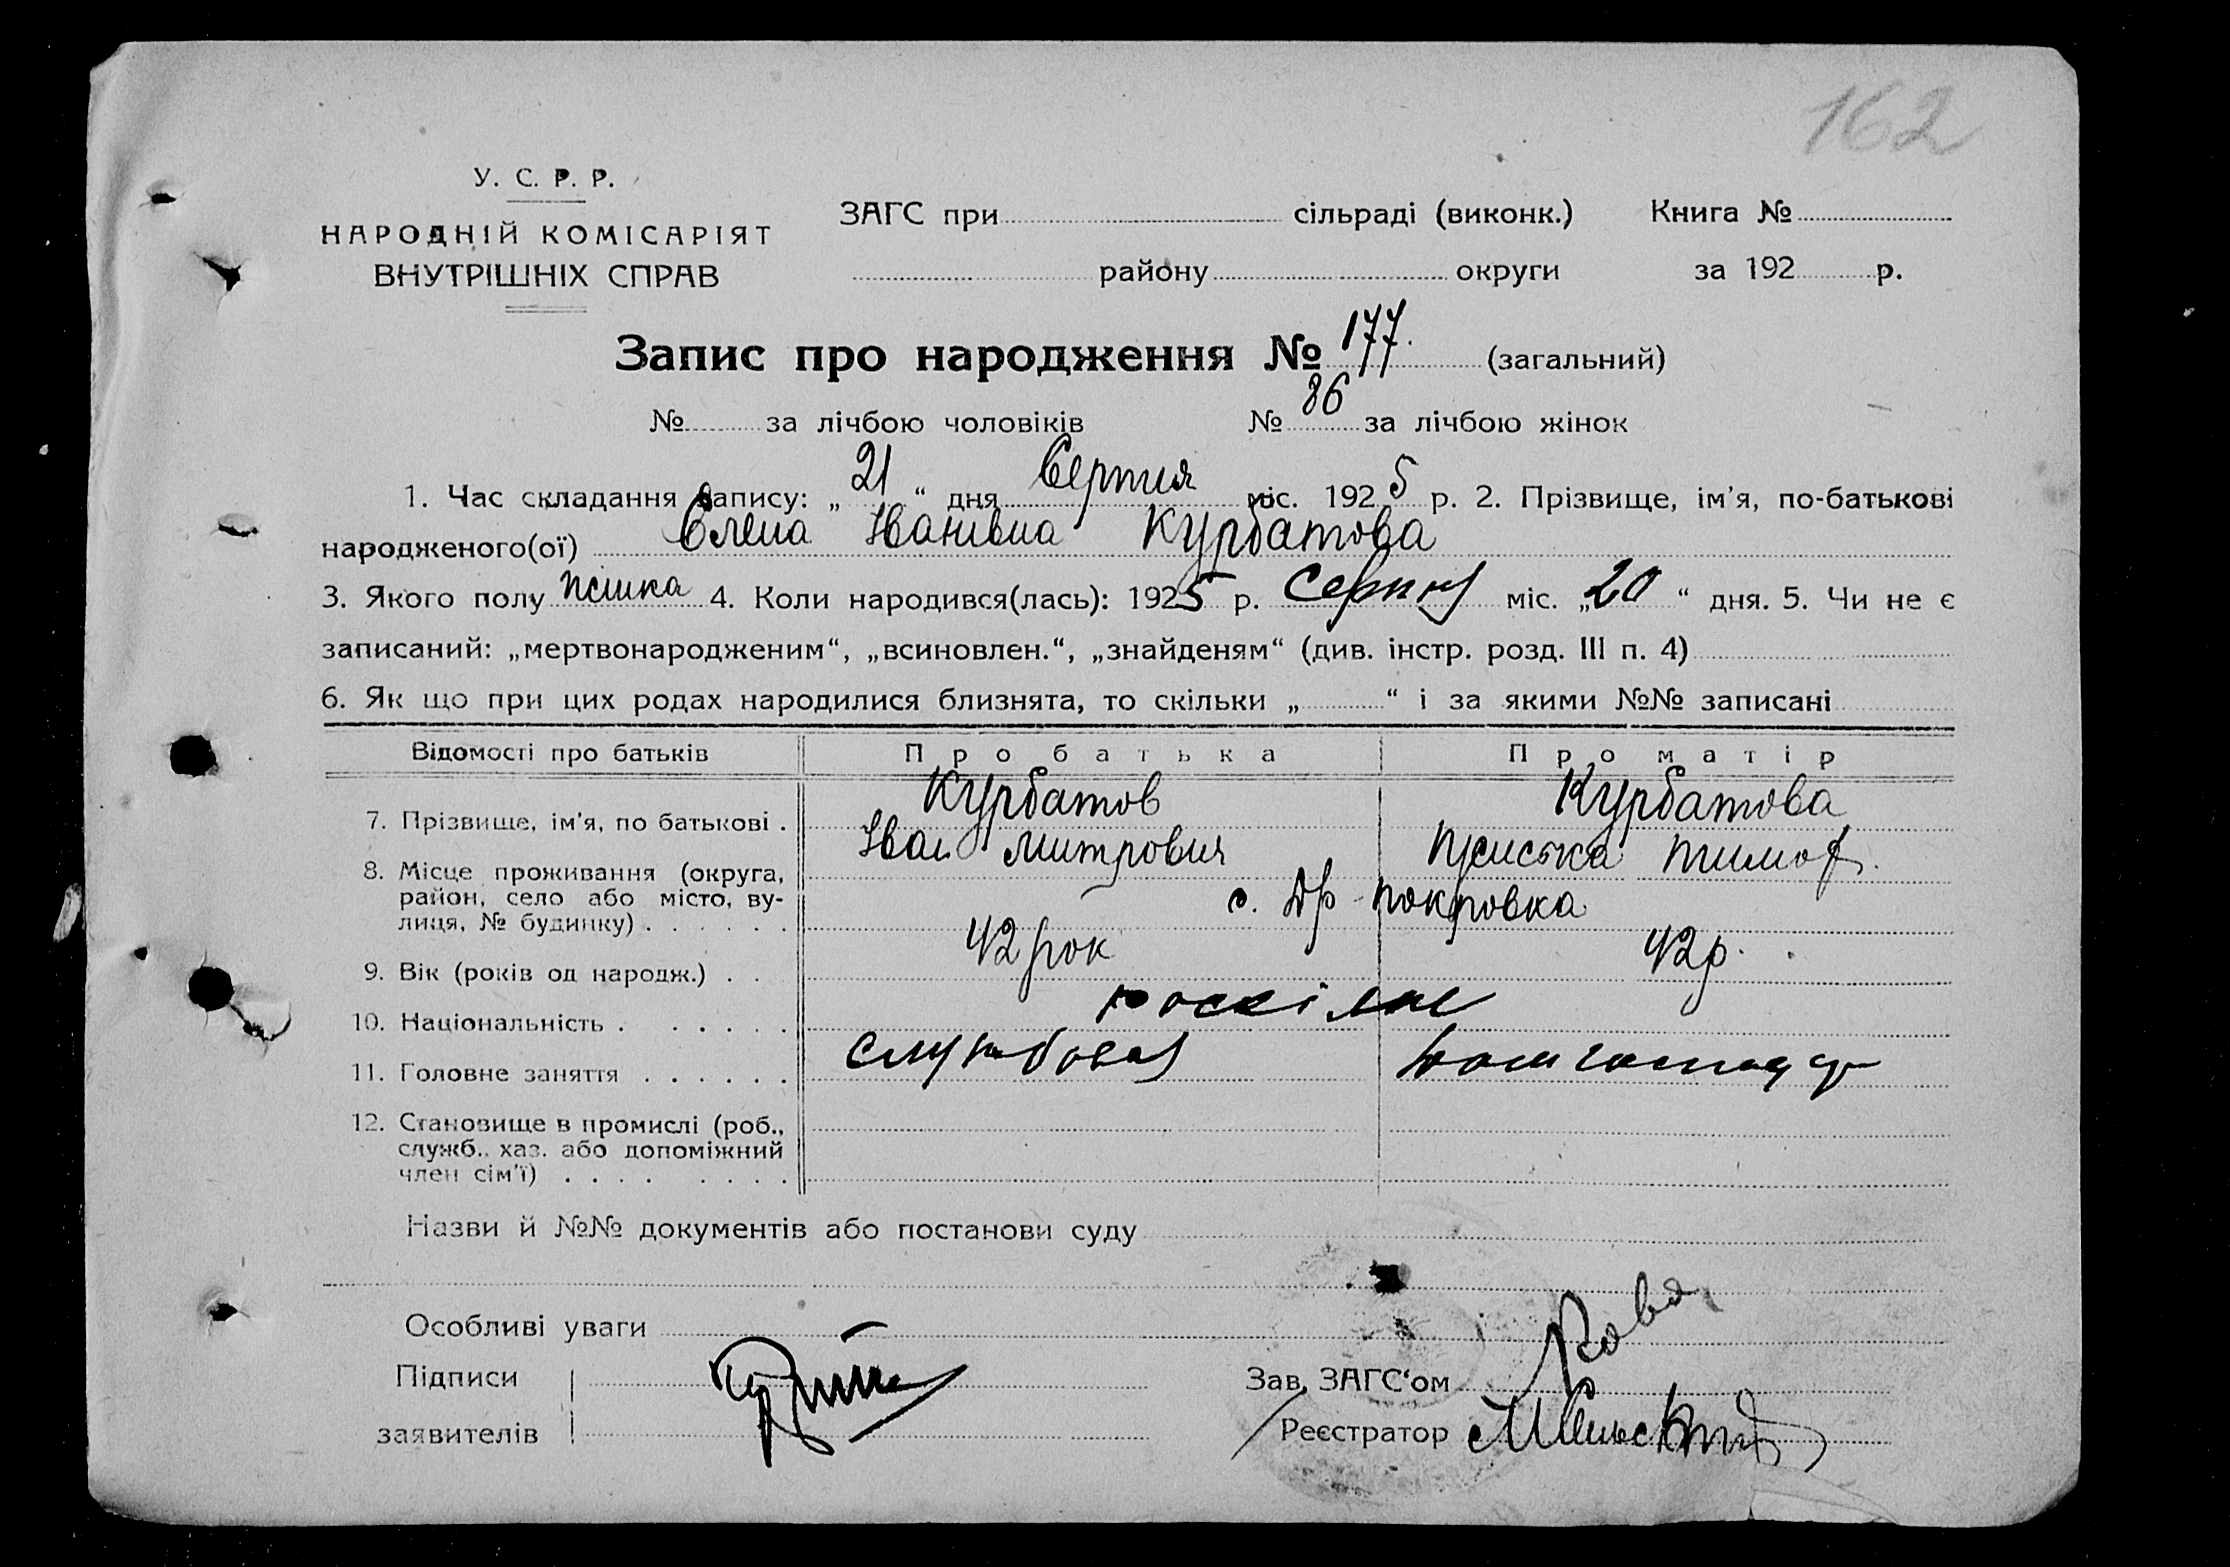 162
У. С. Р. Р.
НАРОДНІЙ КОМІСАРІЯТ
ВНУТРІШНІХ СПРАВ
ЗАГС при сільраді (виконк.) Книга №
району округи за 192 р.
Запис про народження № 177. (загальний)
№ за лічбою чоловіків № 86 за лічбою жінок
1. Час складання запису: „ 21 “ дня Серпня міс. 192 5 р. 2. Прізвище, ім’я, по-батькові
народженого(ої) Олена Іванівна Курбатова
3. Якого полу жінка 4. Коли народився(лась): 1925 р. Серпня міс. „20 “ дня. 5. Чи не є
записаний: „мертвонародженим“, „всиновлен.“, „знайденям“ (див. інстр. розд. III п. 4)
6. Як що при цих родах народилися близнята, то скільки „ “ і за якими №№ записані
Відомості про батьків Про батька Про матір
7. Прізвище, ім’я, по батькові . Курбатов Курбатова
Іван Митрович
8. Місце проживання (округа,
район, село або місто, ву-
лиця, № будинку) . . . . . . с. Др Покровка
9. Вік (років од народж.) . . 42 рок 42 р.
10. Національність . . . . . .
11. Головне заняття . . . . . . Службовец
12. Становище в промислі (роб.,
служб., хаз. або допоміжний
член сім’ї) . . . . . . . .
Назви й №№ документів або постанови суду
Особливі уваги
Підписи
заявителів
Зав. ЗАГС‘ом
Реєстратор